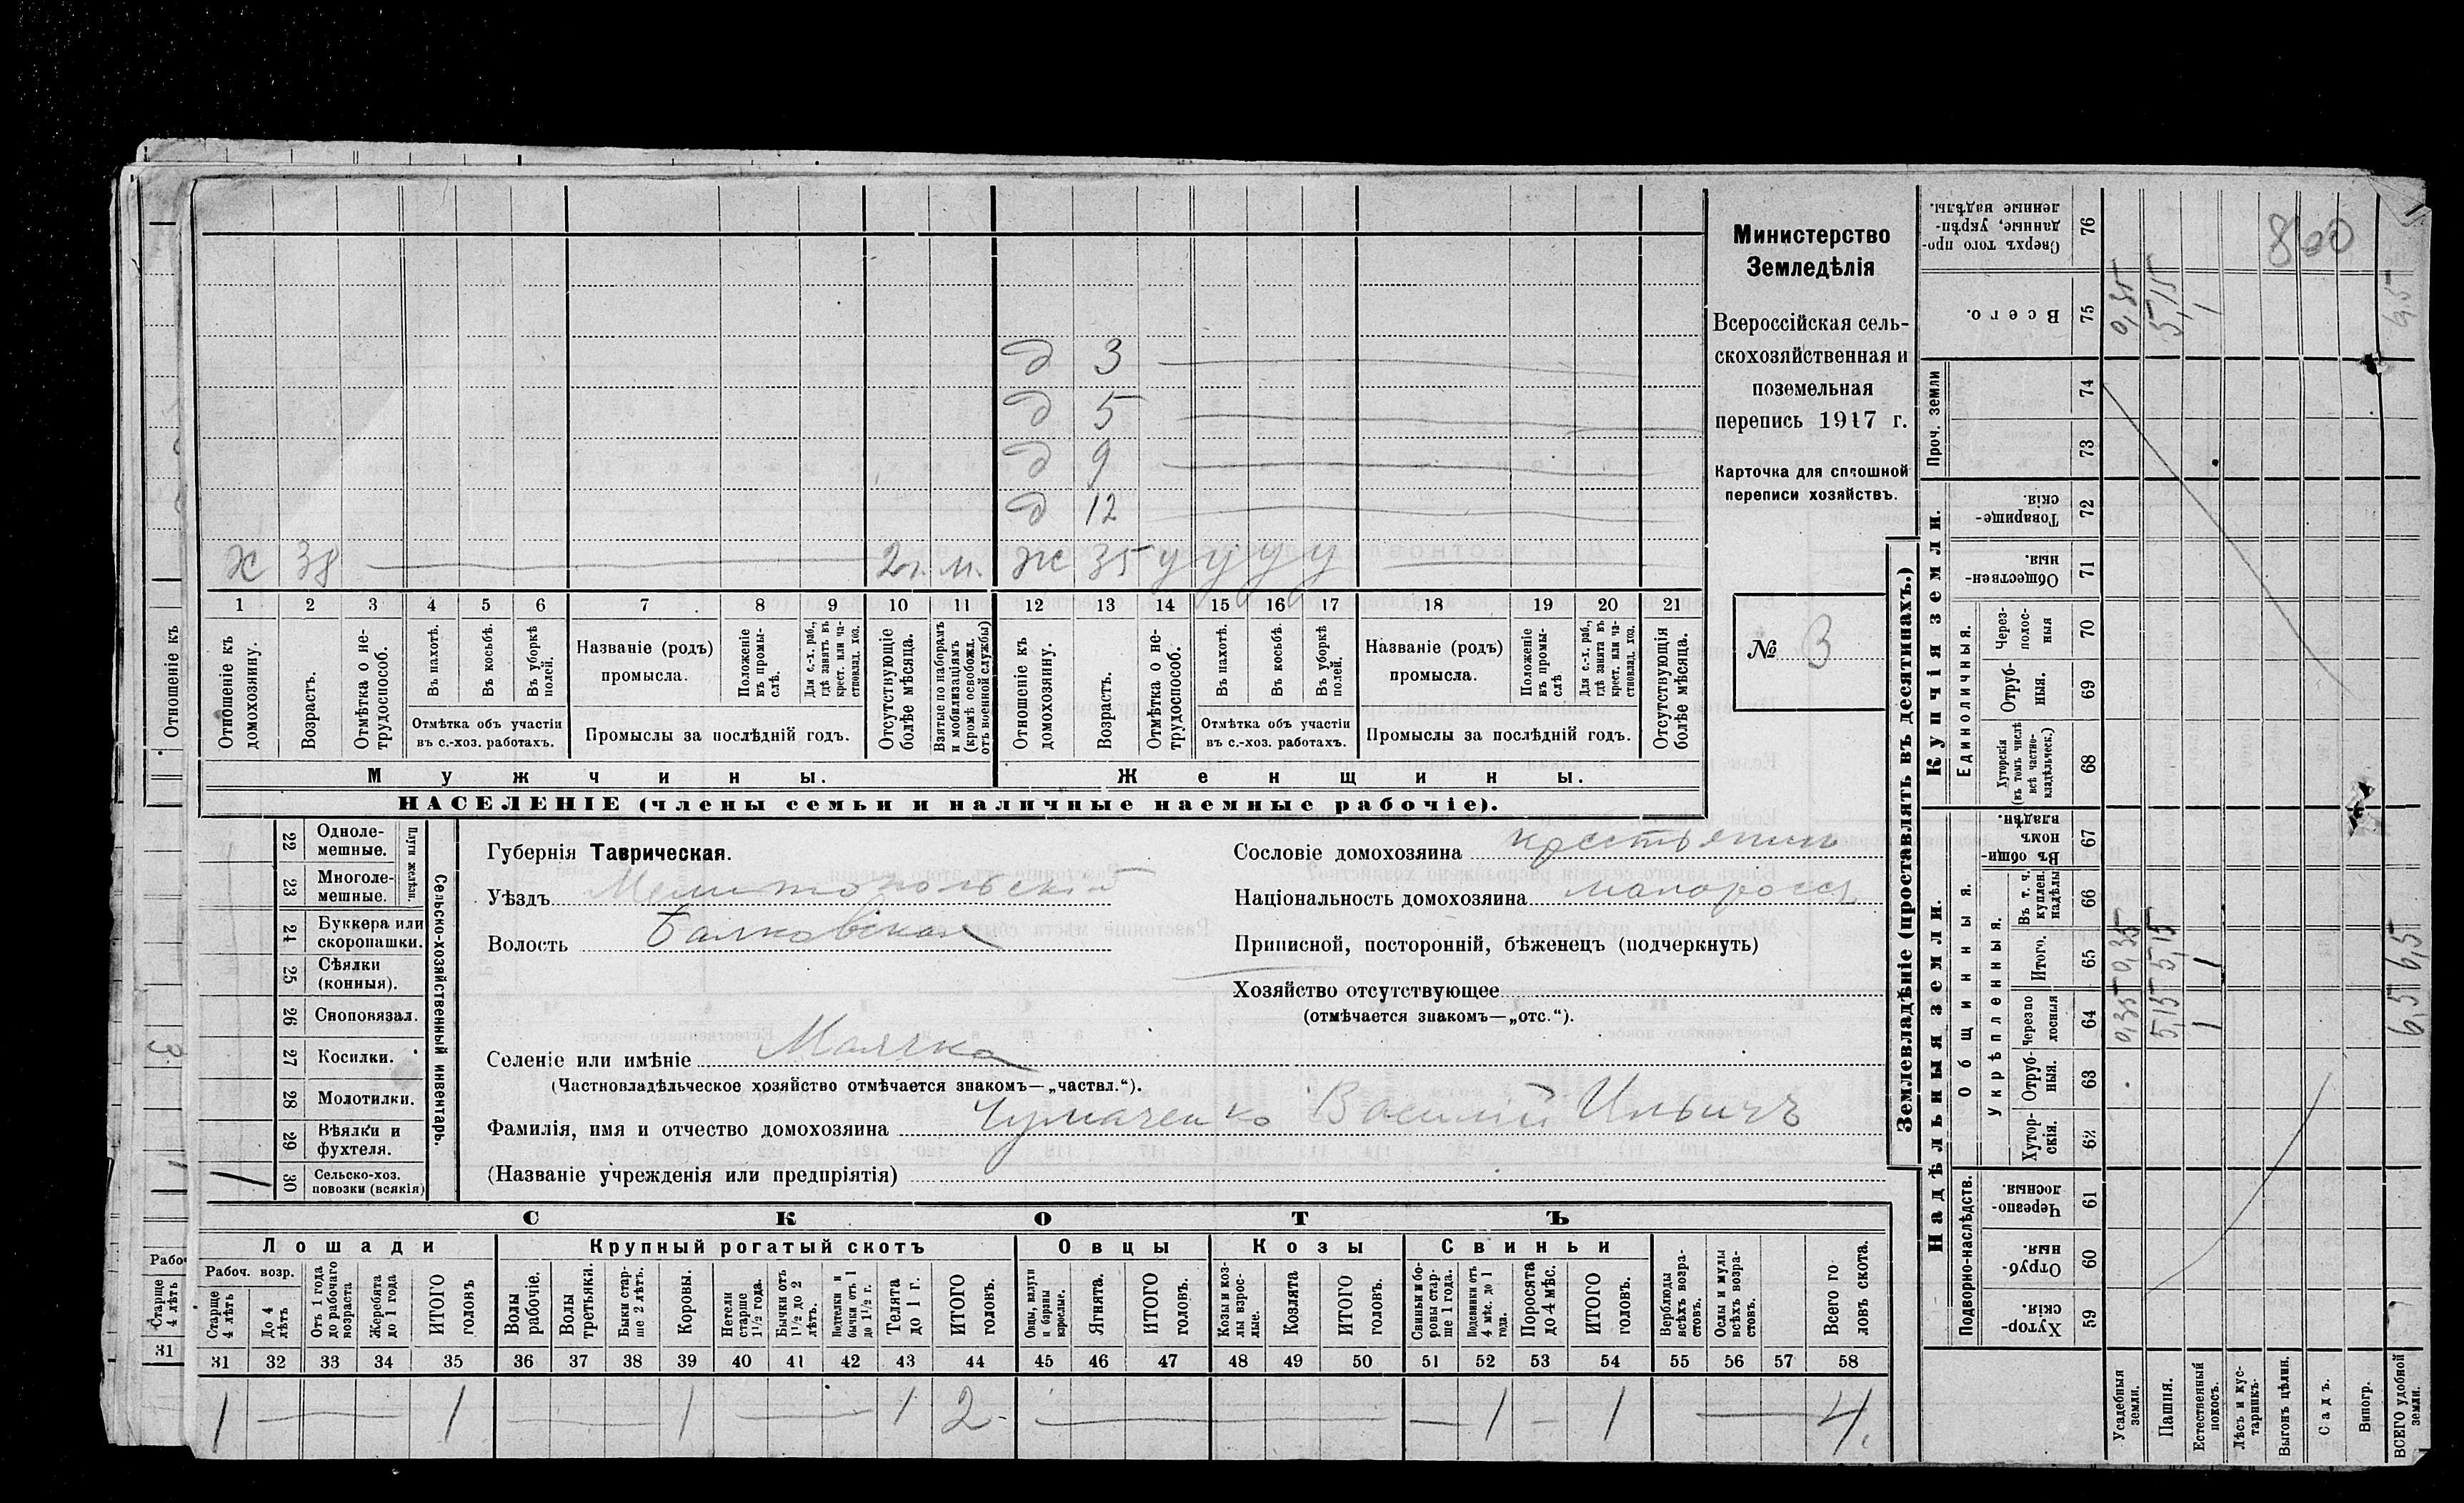 д 3
д 5
д 9
д 12
х 38 2 г. м. ж 35 у у у у
1 2 3 4 5 6 7 8 9 10 11 12 13 14 15 16 17 18 19 20 21
Отношеніе къ домохозяину.
Возрастъ.
Отмѣтка о не-трудоспособ.
Въ пахотѣ.
Въ косьбѣ.
Въ уборкѣ полей.
Отмѣтка объ участіи
въ с.-хоз. работахъ.
Названіе (родъ)
промысла.
Положеніе въ промы-слѣ.
Для с.-х. раб., гдѣ занятъ въ крест. или ча-стновлад. хоз.
Промыслы за послѣдній годъ.
Отсутствующіе болѣе мѣсяца.
Взятые по наборамъ и мобилизаціямъ (кромѣ освобожд. отъ военной службы)
Отношеніе къ домохозяину.
Возрастъ.
Отмѣтка о не-трудоспособ.
Въ пахотѣ.
Въ косьбѣ.
Въ уборкѣ полей.
Отмѣтка объ участіи
въ с.-хоз. работахъ.
Названіе (родъ)
промысла.
Положеніе въ промы-слѣ
Для с.-х. раб., гдѣ занята въ крест. или ча-стновлад. хоз.
Промыслы за послѣдній годъ.
Отсутствующія болѣе мѣсяца.
Мужчины.
Женщины.
НАСЕЛЕНІЕ (члены семьи и наличные наемные рабочіе).
Министерство
Земледѣлія
Всероссійская сель-
скохозяйственная и
поземельная
перепись 1917 г.
Карточка для сплошной
переписи хозяйствъ.
№ 3
22 Одноле-мешные.
23 Многоле-мешные.
Плуги желѣзн.
24 Буккера или скоропашки.
25 Сѣялки (конныя).
26 Сноповязал.
27 Косилки.
28 Молотилки.
29 Вѣялки и фухтеля.
1 30 Сельско-хоз. повозки (всякія)
Сельско-хозяйственный инвентарь.
Губернія Таврическая.
Уѣздъ Мелитопольскій
Волость Балковская
Сословіе домохозяина крестьянин
Національность домохозяина малоросс
Приписной, посторонній, бѣженецъ (подчеркнуть)
Хозяйство отсутствующее
(отмѣчается знакомъ—„отс.“).
Селеніе или имѣніе Маячка
(Частновладѣльческое хозяйство отмѣчается знакомъ—„частвл.“).
Фамилія, имя и отчество домохозяина Чумаченко Василій Ильичъ
(Названіе учрежденія или предпріятія)
СКОТЪ
Лошади
Крупный рогатый скотъ
Овцы
Козы
Свиньи
Рабоч. возр.
Старше 4 лѣтъ
До 4 лѣтъ
Отъ 1 года до рабочаго возраста
Жеребята до 1 года
ИТОГО головъ
Волы рабочіе.
Волы третьяки.
Быки стар-ше 2 лѣтъ.
Коровы.
Нетели старше 1½ года.
Бычки отъ 1½ до 2 лѣтъ.
Подтелки и бычки отъ 1 до 1½ г.
Телята до 1 г.
ИТОГО головъ.
Овцы, валухи и бараны взрослые.
Ягнята.
ИТОГО головъ.
Козы и коз-лы взрос-лые.
Козлята
ИТОГО головъ.
Свиньи и бо-ровы стар-ше 1 года.
Подсвинки отъ 4 мѣс. до 1 года.
Поросята до 4 мѣс.
ИТОГО головъ.
Верблюды всѣхъ возра-стовъ.
Ослы и мулы всѣхъ возра-стовъ.
Всего го-ловъ скота.
31 32 33 34 35 36 37 38 39 40 41 42 43 44 45 46 47 48 49 50 51 52 53 54 55 56 57 58
1 — 1 — 1 — 1 2 — — 1 — 1 — 4
Землевладѣніе (проставлять въ десятинахъ.)
Надѣльныя земли.
Купчія земли.
Проч. земли
Подворно-наслѣдств.
Общинныя.
Укрѣпленныя.
Единоличныя.
59 Хутор-скія.
60 Отруб-ныя.
61 Черезпо-лосныя.
62 Хутор-скія.
63 Отруб-ныя.
64 Черезпо лосныя
65 Итого.
66 Въ т. ч. куплен. надѣлы
67 Въ общин-номъ владѣн.
68 Хуторскія (въ томъ числѣ всѣ частно-владѣльческ.)
69 Отруб-ныя.
70 Через-полос-ныя
71 Обществен-ныя
72 Товарище-скія.
73
74
75 Всего.
76 Сверхъ того про-данные, укрѣп-ленные надѣлы.
Усадебныя земли. 0,35 0,35 0,35
Пашня. 5,15 5,15 5,15
Естественный покосъ. 1 1 1
Лѣсъ и кус-тарникъ.
Выгонъ цѣлин.
Садъ.
Виногр.
ВСЕГО удобной земли. 6,5 6,5 6,5
800
Отношеніе къ
3
Старше 4 лѣтъ
31